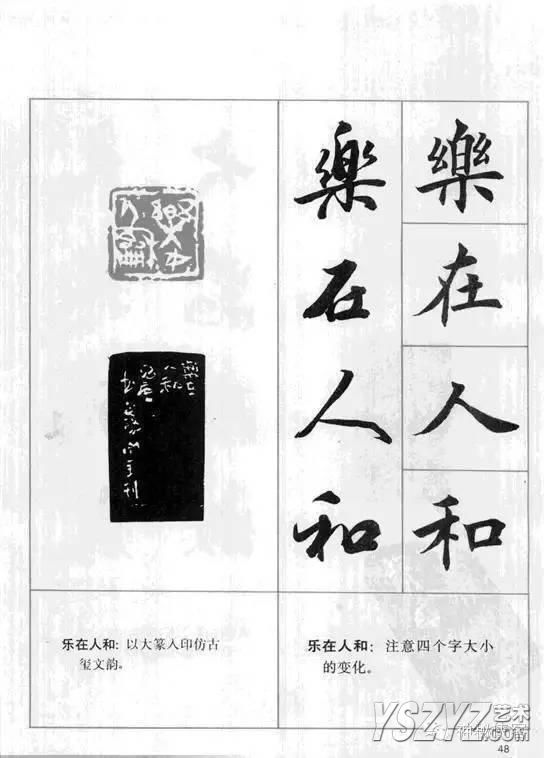 樂在人和
樂在人和
樂在
人和
乐在人和：以大篆入印仿古
玺文韵。
乐在人和：注意四个字大小
的变化。
YSZYZ艺术
.COM
48